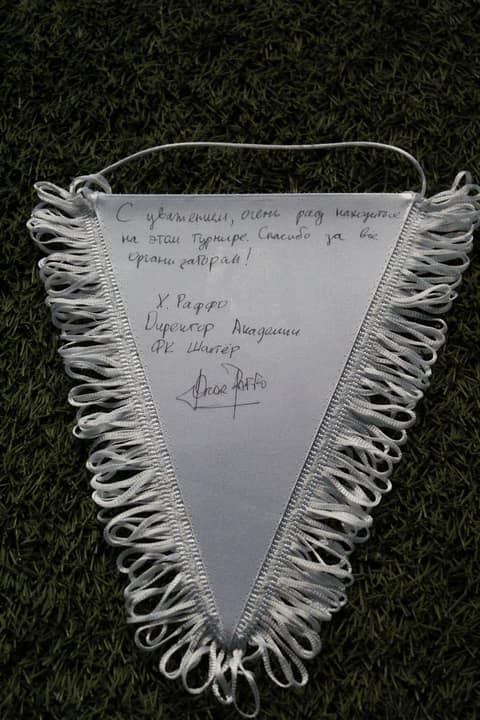 С уважением, очень рад находиться
на этом турнире. Спасибо за все
организаторам!
Х. Раффо
Директор Академии
ФК Шахтёр